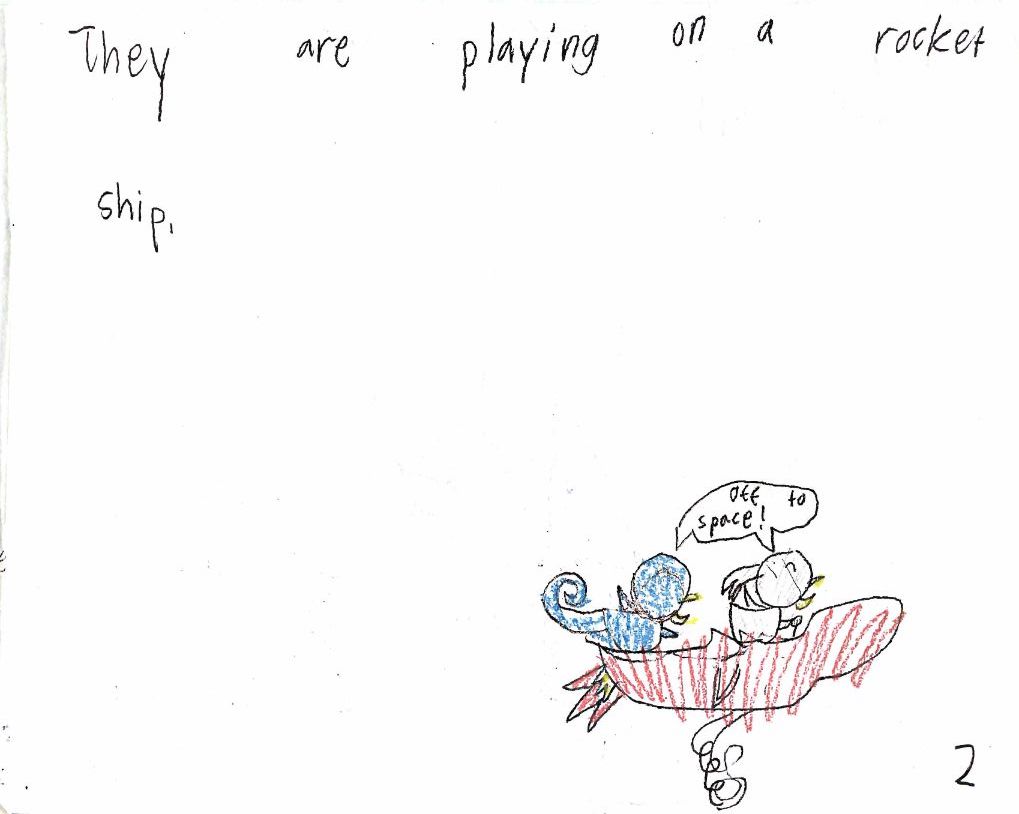 They are playing on a rocket
ship.
Off to
space!
2